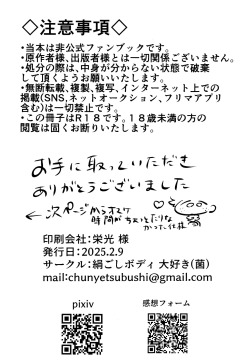 ◇注意事項◇
・当本は非公式ファンブックです。
・原作者様、出版者様とは一切関係ございません。
・処分の際は、中身が分からない状態で破棄
して頂くようお願いいたします。
・無断転載、複製、複写、インターネット上での
掲載(SNS,ネットオークション、フリマアプリ
含む)は一切禁止です。
・この冊子はR18です。18歳未満の方の
閲覧は固くお断りいたします。
お手に取っていただき
ありがとうございました
←次ページから
時間がちょっと足りな
かった
印刷会社:栄光 様
発行日:2025.2.9
サークル:絹ごしボディ 大好き(菌)
mail:chunyetsubushi@gmail.com
pixiv
感想フォーム